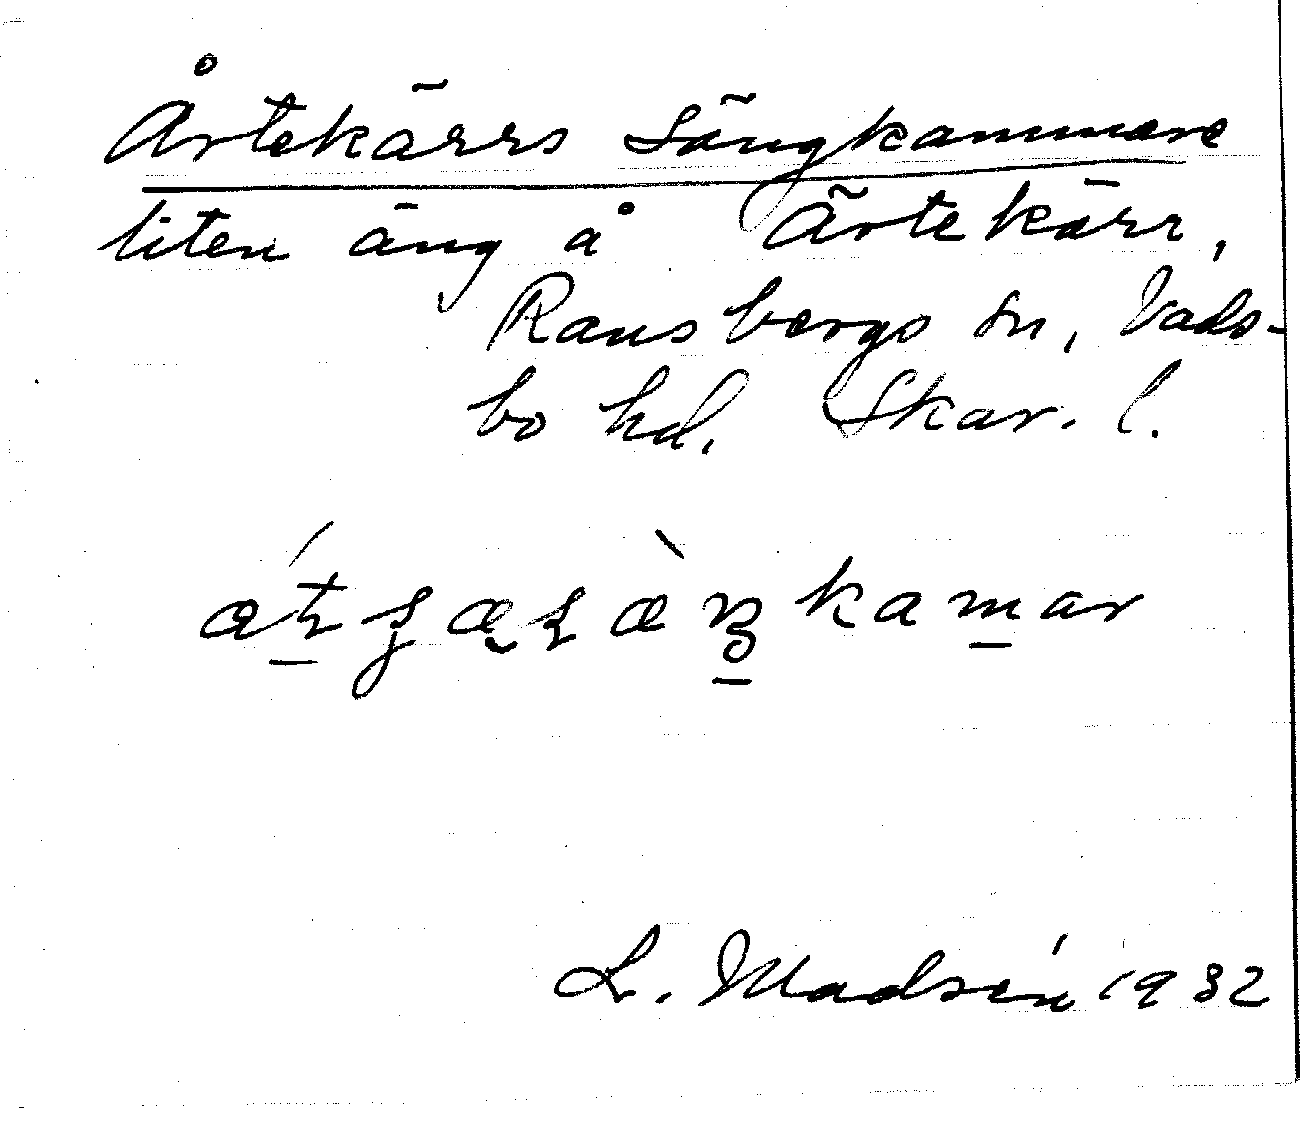 Årtekärrs sängkammare
liten äng å Ärtekärr,
Ransbergs sn, Vads-
bo hd. Skar. l.
L. Madsén 1932